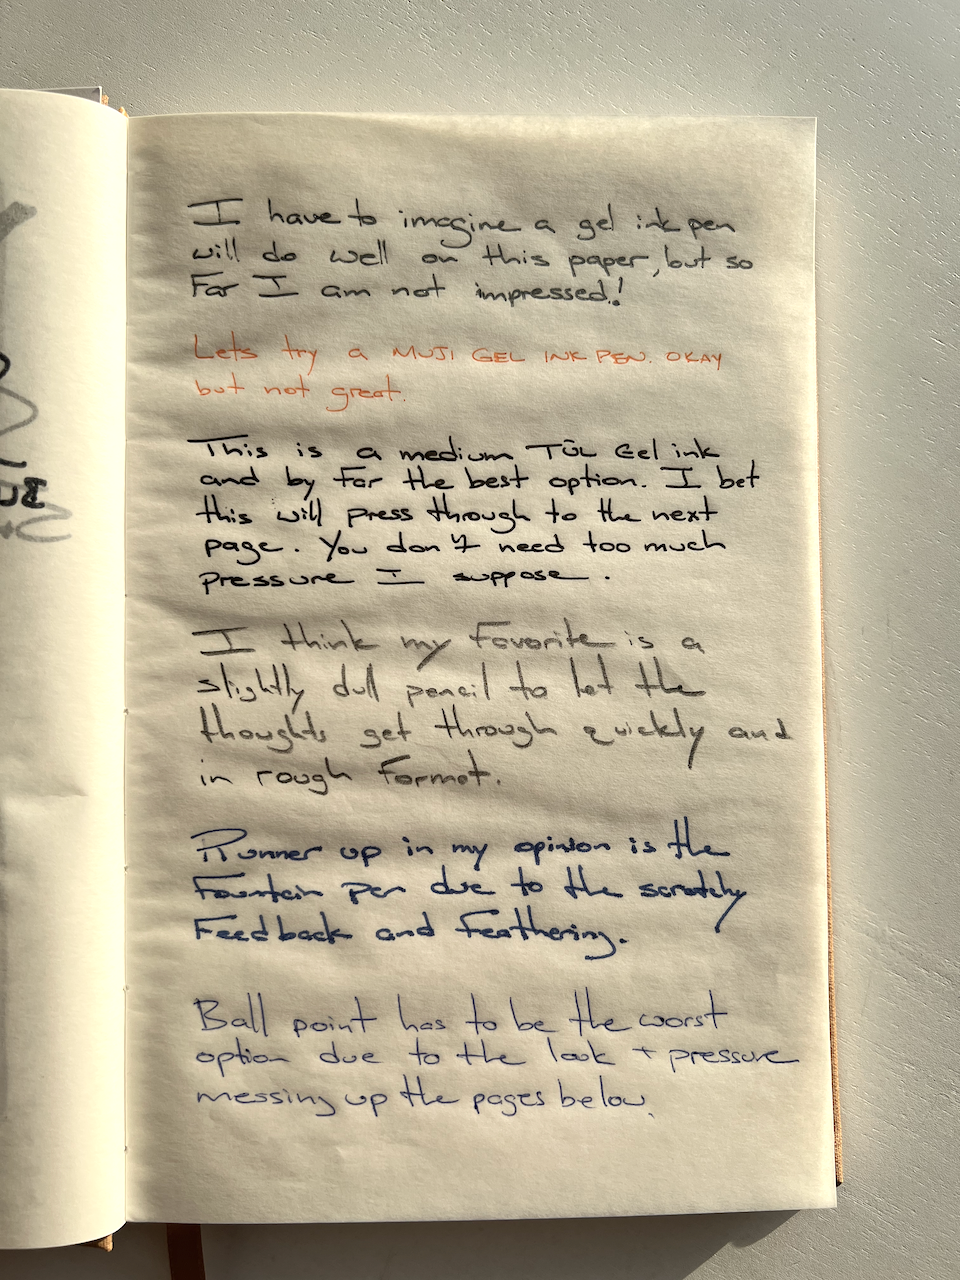 I have to imagine a gel ink pen
will do well on this paper, but so
far I am not impressed!
Lets try a MUJI GEL INK PEN. OKAY
but not great.
This is a medium TŪL Gel ink
and by far the best option. I bet
this will press through to the next
page. You don't need too much
pressure I suppose.
I think my favorite is a
slightly dull pencil to let the
thoughts get through quickly and
in rough format.
Runner up in my opinion is the
fountain pen due to the scratchy
feedback and feathering.
Ball point has to be the worst
option due to the look + pressure
messing up the pages below.